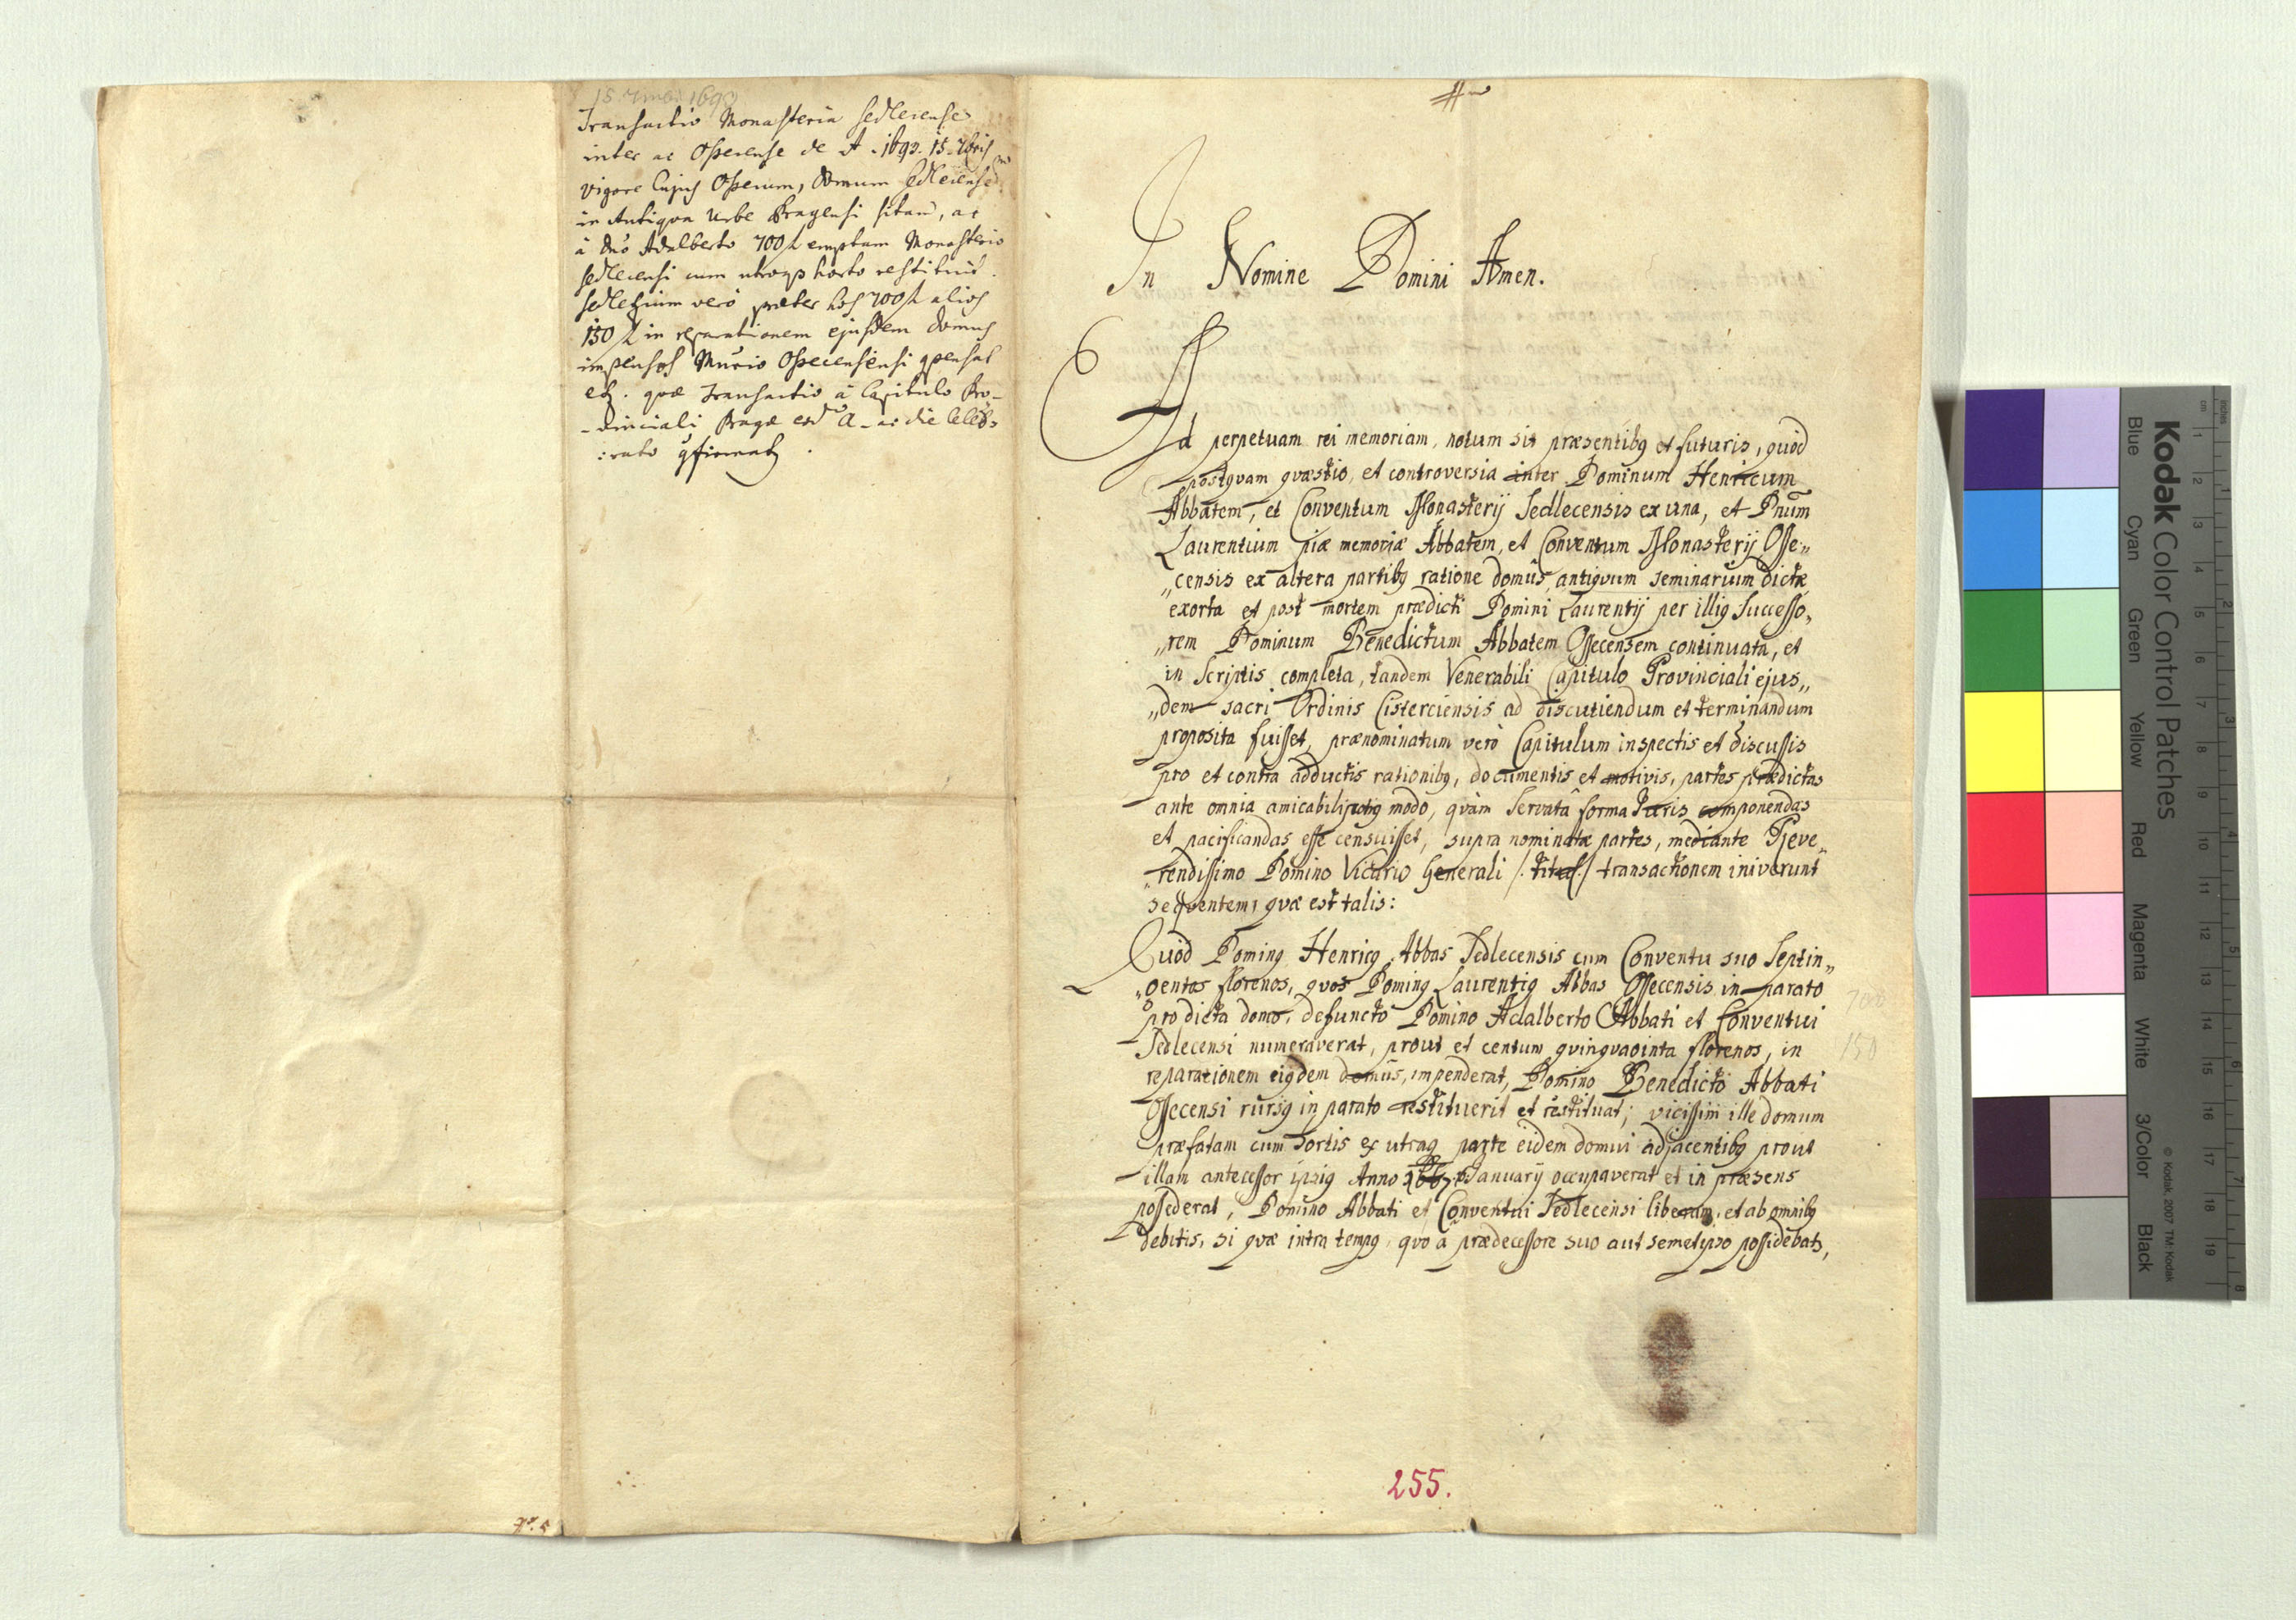 15 7mbr 1693
Transactio Monasteria Sedlecense
inter ac Ossecense de A. 1693. 15. 7bris
vigore cujus Ossecum, domum Sedlecensem
in Antiqua Urbe Pragensi sitam, ac
à Dno Adalberto 700 f emptam Monasterio
Sedlecensi cum utroqs horto restituit.
Sedlecium verò praeter hos 700 f alios
150 f in reparationem ejusdem domus
impensos Mnrio Ossecensi
etz. quae Transactio à Capitulo Pro-
-vinciali Pragae eod A - ac die celeb-
:rato
In Nomine Domini Amen.
Ad perpetuam rei memoriam, notum sit praesentibq et futuris, quod
postquam quaestio, et controversia inter Dominum Henricum
Abbatem, et Conventum Monasterij Sedlecensis ex una, et Dnum
Laurentium piae memoriae Abbatem, et Conventum Monasterij Osse„
„censis ex altera partibq ratione domûs, antiquum seminarium dictae
exorta et post mortem praedicti Domini Laurentij per illiq Successo„
„rem Dominum Benedictum Abbatem Ossecensem continuata, et
in Scriptis completa, tandem Venerabili Capitulo Provinciali ejus„
„dem sacri Ordinis Cisterciensis ad discutiendum et terminandum
proposita fuisset, praenominatum verò Capitulum inspectis et discussis
pro et contra adductis rationibq, documentis et motivis, partes praedictas
ante omnia amicabili potiq modo, quàm servatâ formâ Juris componendas
et pacificandas esse censuisset, supra nominatae partes, mediante Reve„
„rendissimo Domino Vicario Generali /: titul :/ transactionem iniverunt
sequentem, quae est talis:
Quod Dominq Henricq Abbas Sedlecensis cum Conventu suo Septin„
„gentos florenos, quos Dominq Laurentiq Abbas Ossecensis in parato
pro dicta domo, defuncto Domino Adalberto Abbati et Conventui
Sedlecensi numeraverat, prout et centum quinquaginta florenos, in
reparationem eiqdem domûs, impenderat, Domino Benedicto Abbati
Ossecensi rursq in parato restituerit et restituat; vicissim ille domum
praefatam cum hortis ex utraq parte eidem domui adjacentibq prout
illam antecessor ipsiq Anno Januarij occupaverat et in praesens
possederat, Domino Abbati et Conventui Sedlecensi liberam, et ab omnibq
debitis, si quae intra tempq, quo à praedecessore suo aut semetipso possidebatr,
700
150
255.